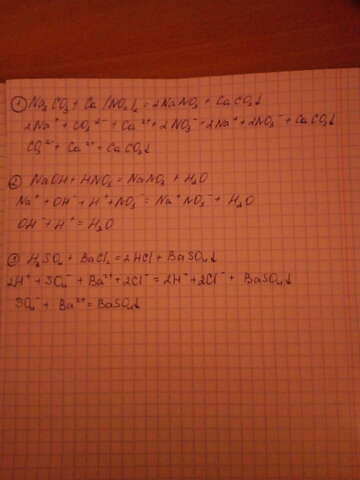 ① Na₂CO₃ + Ca(NO₃)₂ = 2NaNO₃ + CaCO₃↓
2Na⁺ + CO₃²⁻ + Ca²⁺ + 2NO₃⁻ = 2Na⁺ + 2NO₃⁻ + CaCO₃↓
CO₃²⁻ + Ca²⁺ = CaCO₃↓
② NaOH + HNO₃ = NaNO₃ + H₂O
Na⁺ + OH⁻ + H⁺ + NO₃⁻ = Na⁺ NO₃⁻ + H₂O
OH⁻ + H⁺ = H₂O
③ H₂SO₄ + BaCl₂ = 2HCl + BaSO₄↓
2H⁺ + SO₄⁻ + Ba²⁺ + 2Cl⁻ = 2H⁺ + 2Cl⁻ + BaSO₄↓
SO₄⁻ + Ba²⁺ = BaSO₄↓